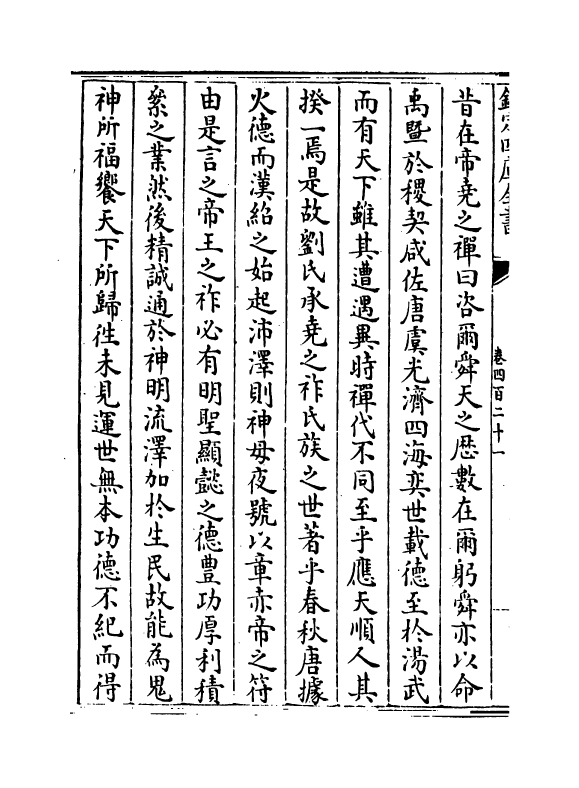 欽定四庫全書
卷四百二十一
昔在帝堯之禪曰咨爾舜天之厯數在爾躬舜亦以命
禹暨於稷契咸佐唐虞光濟四海奕世載德至於湯武
而有天下雖其遭遇異時禪代不同至乎應天順人其
揆一焉是故劉氏承堯之祚氏族之世著乎春秋唐據
火德而漢紹之始起沛澤則神母夜號以章赤帝之符
由是言之帝王之祚必有明聖顯懿之德豊功厚利積
絫之業然後精誠通於神明流澤加於生民故能為鬼
神所福饗天下所歸徃未見運世無本功德不紀而得